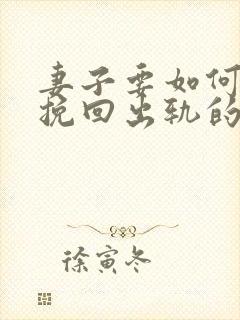 妻子要如何
挽回出轨的
徐寅冬